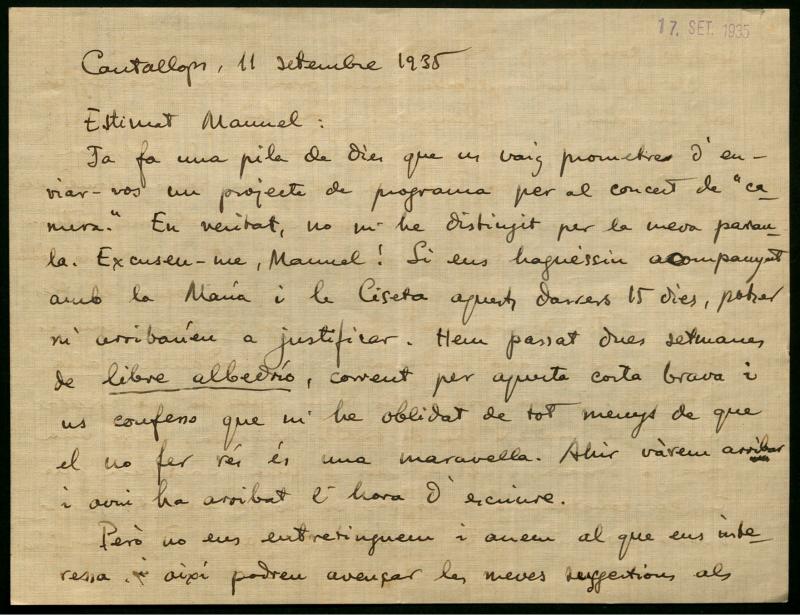 17. SET. 1935
Cantallops, 11 setembre 1935
Estimat Manuel:
Ja fa una pila de dies que us vaig prometre d'en-
viar-vos un projecte de programa per al concert de "ca-
mera." En veritat, no m'he distingit per la meva parau-
la. Excuseu-me, Manuel! Si ens haguéssin acompanyat
amb la Maria i la Ciseta aquests darrers 15 dies, potser
m'arribaríeu a justificar. Hem passat dues setmanes
de libre albedrío, corrent per aquesta costa brava i
us confesso que m'he oblidat de tot menys de que
el no fer rés és una maravella. Ahir vàrem arribar
i avui ha arribat l'hora d'escriure.
Però no ens entretinguem i anem al que ens inte-
ressa. i així podreu avençar les meves suggestions als